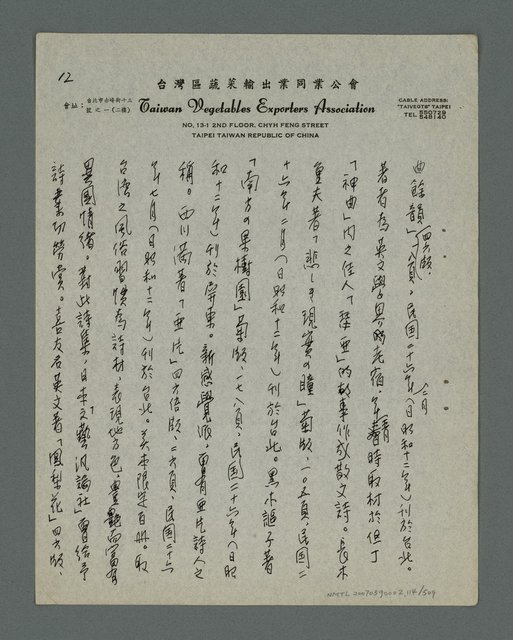 12
台灣區蔬菜輸出業同業公會
會址：台北市赤峰街十三號之一(二樓)
Taiwan Vegetables Exporters Association
CABLE ADDRESS: "TAIVEGTS" TAIPEI
TEL 550728 548140
NO, 13-1 2ND FLOOR, CHYH FENG STREET
TAIPEI TAIWAN REPUBLIC OF CHINA
曲餘韻」四六版、八頁、民国二十六年二月(日昭和十二年)刊於台北。
著者為英文學界的老宿，年青時取材於但丁
「神曲」內之佳人「琴亜」的故事作成散文詩。長木
重夫著「悲しき現實の瞳」菊版、一〇五頁、民国二
十六年二月(日昭和十二年)刊於台北。黑木謳子著
「南方の果樹園」菊版、一七八頁、民国二十六年(日昭
和十二年)刊於屏東。新感覺派，曾有亜片詩人之
稱。西川満著「亜片」四六倍版、二六頁、民国二十六
年七月(日昭和十二年)刊於台北。美本限定百冊。取
台湾之風俗習慣為詩材，表現地方色，豐艷而富有
異国情緒。對此詩集，日本之「文藝汎論社」曾給予
詩業功勞賞。喜友名英文著「鳳梨花」四六版、
NMTL 20070590002_114/509